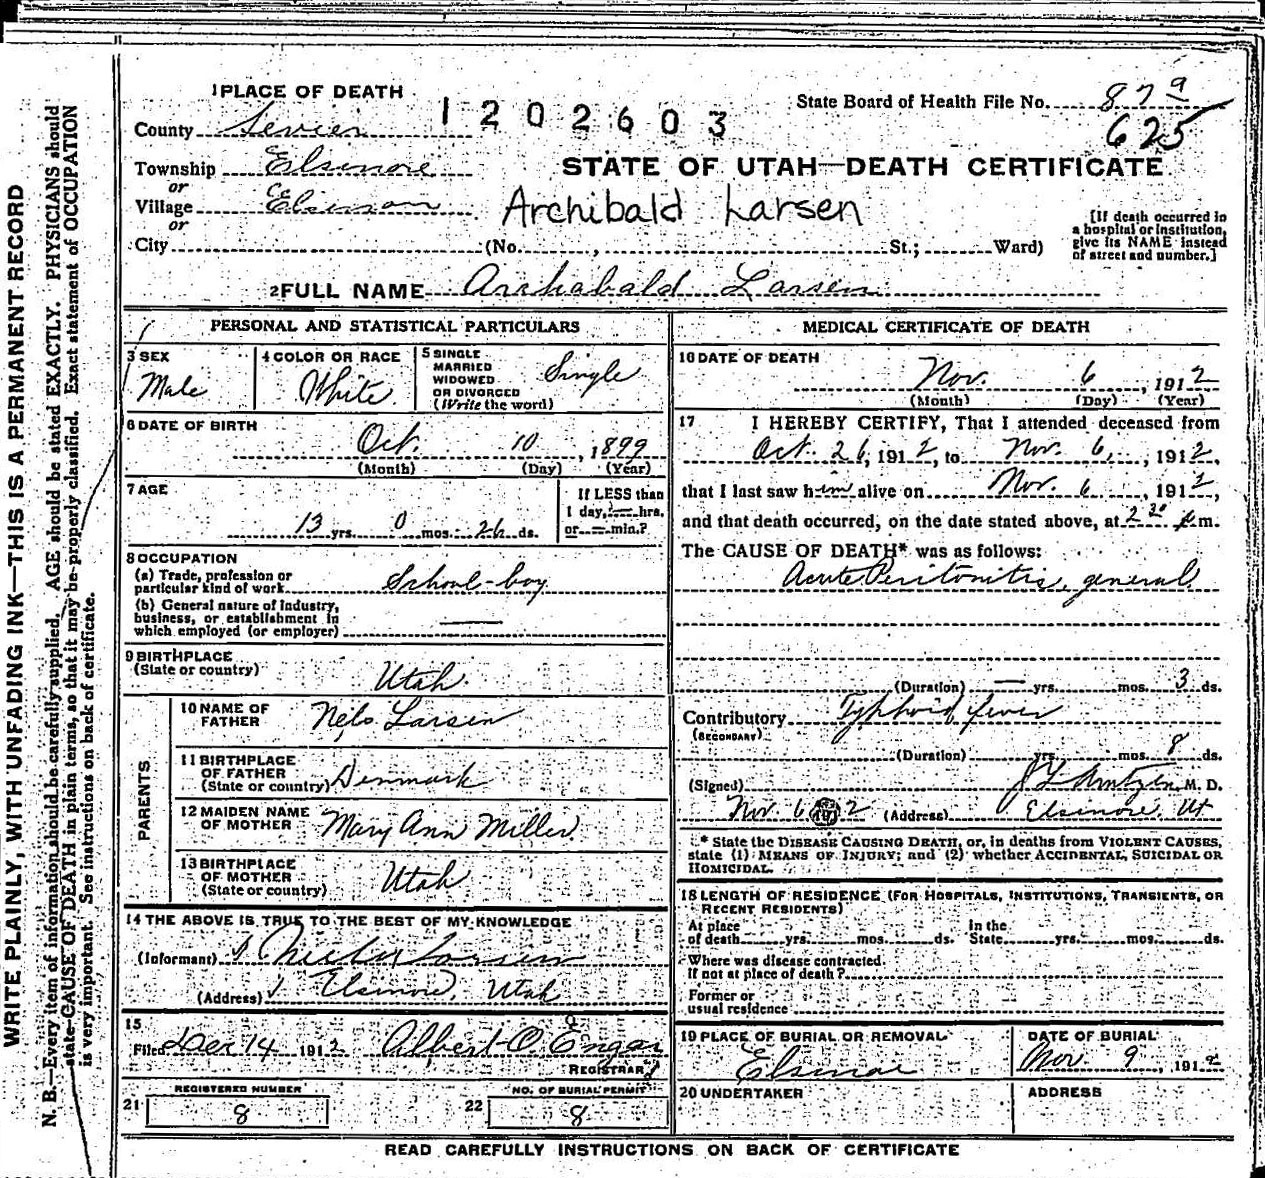 1 PLACE OF DEATH
1 2 0 2 6 0 3
State Board of Health File No. 879
625
County Sevier
Township Elsinore
or
Village
or
City (No. , St.; Ward)
STATE OF UTAH—DEATH CERTIFICATE
Archibald Larsen
[If death occurred in
a hospital or institution,
give its NAME instead
of street and number.]
2 FULL NAME Archabald Larsen
PERSONAL AND STATISTICAL PARTICULARS
3 SEX
Male
4 COLOR OR RACE
White
5 SINGLE
MARRIED
WIDOWED
OR DIVORCED
(Write the word)
Single
6 DATE OF BIRTH
Oct. 10, 1899
(Month) (Day) (Year)
7 AGE
13 yrs. 0 mos. 26 ds.
If LESS than
1 day, — hrs.
or — min.?
8 OCCUPATION
(a) Trade, profession or
particular kind of work School-boy
(b) General nature of industry,
business, or establishment in
which employed (or employer) —
9 BIRTHPLACE
(State or country) Utah.
PARENTS
10 NAME OF
FATHER Nels Larsen
11 BIRTHPLACE
OF FATHER
(State or country) Denmark
12 MAIDEN NAME
OF MOTHER Mary Ann Miller
13 BIRTHPLACE
OF MOTHER
(State or country) Utah
14 THE ABOVE IS TRUE TO THE BEST OF MY KNOWLEDGE
(Informant) Larsen
(Address) Elsinore, Utah
15
Filed Dec 14 1912 Albert O
REGISTRAR
REGISTERED NUMBER
21 8
NO. OF BURIAL PERMIT
22 8
MEDICAL CERTIFICATE OF DEATH
16 DATE OF DEATH
Nov. 6, 1912
(Month) (Day) (Year)
17 I HEREBY CERTIFY, That I attended deceased from
Oct. 26, 1912, to Nov. 6, 1912,
that I last saw him alive on Nov. 6, 1912,
and that death occurred, on the date stated above, at 2 30 p m.
The CAUSE OF DEATH* was as follows:
Acute Peritonitis, general
(Duration) — yrs. mos. 3 ds.
Contributory Typhoid fever
(SECONDARY)
(Duration) yrs. mos. 8 ds.
(Signed) M. D.
Nov. 6 1912 (Address) Elsinore, Ut
* State the DISEASE CAUSING DEATH, or, in deaths from VIOLENT CAUSES,
state (1) MEANS OF INJURY; and (2) whether ACCIDENTAL, SUICIDAL OR
HOMICIDAL.
18 LENGTH OF RESIDENCE (FOR HOSPITALS, INSTITUTIONS, TRANSIENTS, OR
RECENT RESIDENTS)
At place
of death yrs. mos. ds.
In the
State yrs. mos. ds.
Where was disease contracted.
If not at place of death?
Former or
usual residence
19 PLACE OF BURIAL OR REMOVAL
DATE OF BURIAL
Nov. 9, 191
20 UNDERTAKER
ADDRESS
READ CAREFULLY INSTRUCTIONS ON BACK OF CERTIFICATE
WRITE PLAINLY, WITH UNFADING INK—THIS IS A PERMANENT RECORD
N. B.—Every item of information should be carefully supplied. AGE should be stated EXACTLY. PHYSICIANS should
state CAUSE OF DEATH in plain terms, so that it may be properly classified. Exact statement of OCCUPATION
is very important. See instructions on back of certificate.